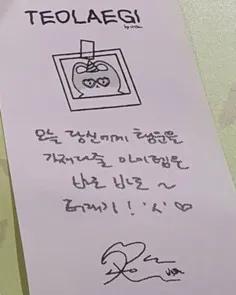 TEOLAEGI
오늘 당신에게 행운을
가져다줄 아이템은
바로 바로 ~
터래기! 'ㅅ' ♡